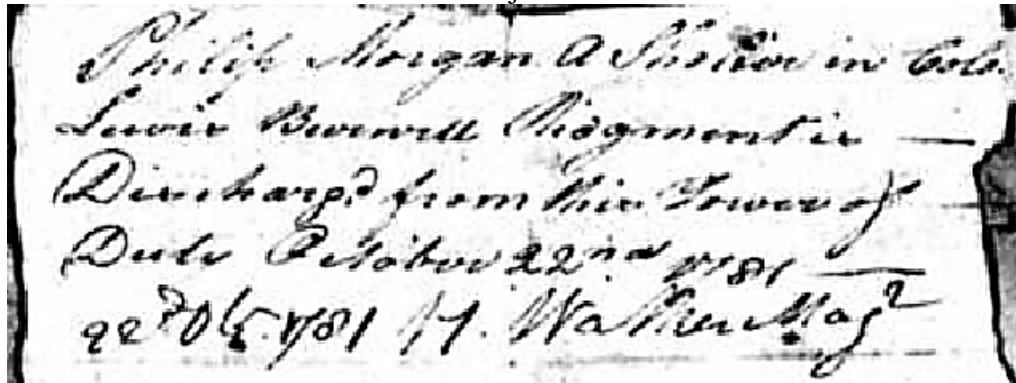 Philip Morgan A Sholior in Colo.
Lewis Burwell Ridgment is
Discharg'd from this Tower of
Duty October 22nd 1781
22d Oct. 1781 H. Walker Majr